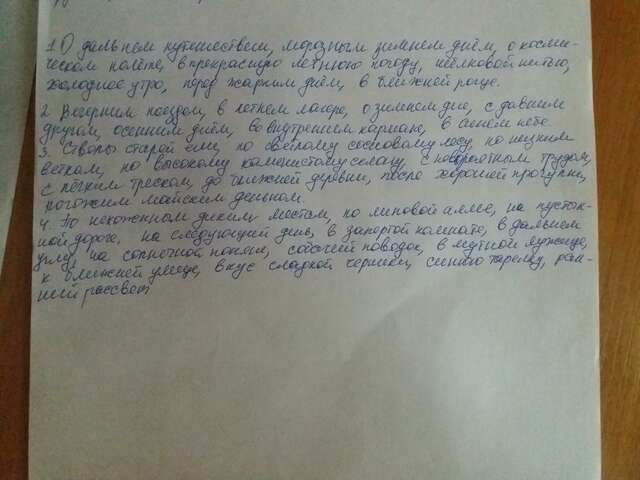 1. О дальнем путешествии, морозным зимнем днём, о косми-
ческом полёте, в прекрасную летнюю погоду, шёлковой нитью,
холодное утро, перед жарким днём, в ближней роще.
2. Вечерним поездом, в летнем лагере, о зимнем дне, с давним
другом, осенним днём, во внутреннем кармане, в синем небе.
3. Стволы старой ели, по светлому сосновому лесу, по нецким
веткам, по высокому каменистому склону, с невероятным трудом,
с лёгким треском, до ближней деревни, после хорошей прогулки,
погожим майским деньком.
4. По нехоженным диким местам, по липовой аллее, на пустын-
ной дороге, на следующий день, в запертой комнате, в дальнем
углу, на солнечной поляне, собачий поводок, в мутной лужице,
к ближней улице, вкус сладкой черники, синюю тарелку, ран-
ний рассвет